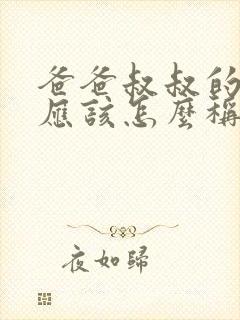 爸爸叔叔的
應該怎麼稱
夜如歸